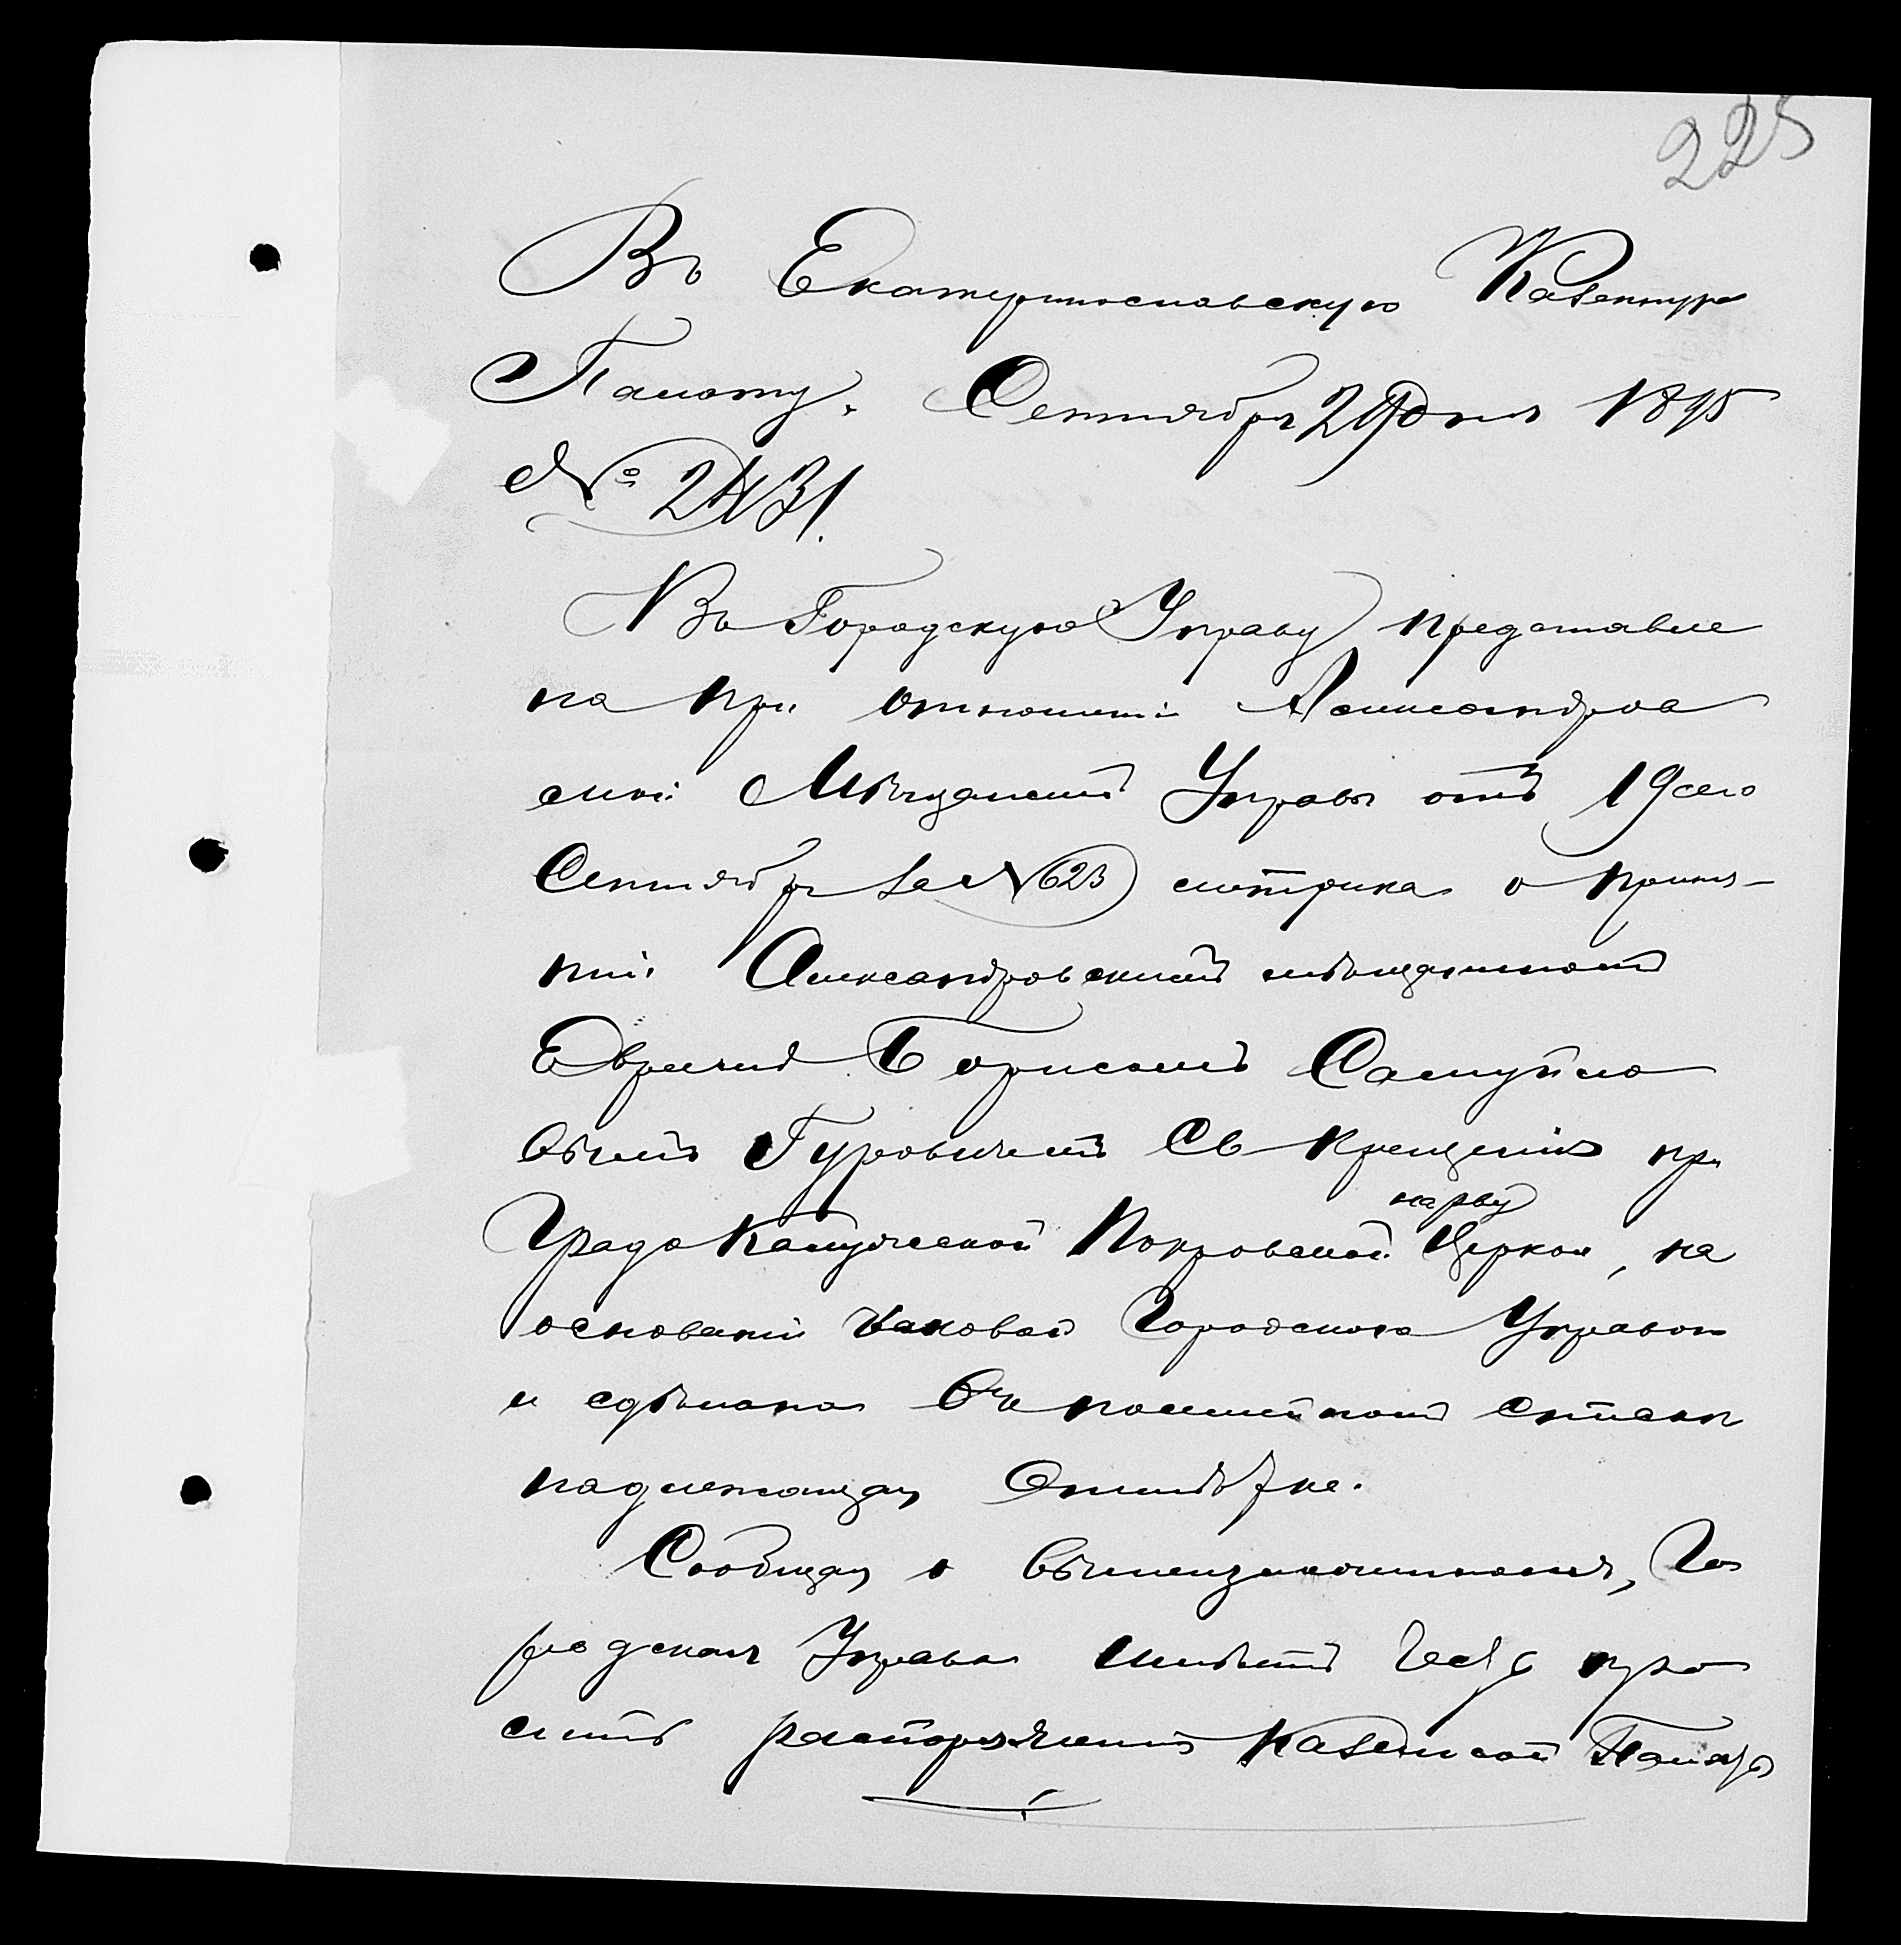 225
Въ Екатеринославскую Казенную
Палату. Сентября 29 дня 1895
№ 2431.
Въ Городскую Управу представле
на при отношеніи Александров
ской Мѣщанской Управы отъ 19 сего
Сентября за № 623 метрика о приня-
тіи Александровскимъ мѣщаниномъ
Евреемъ Борисомъ Самуйло
вымъ Гуровичемъ Св Крещенія при
Градо Покровской Церкви, на
основаніи каковой Городскою Управою
и сдѣлана въ посемейномъ спискѣ
надлежащая отмѣтка.
Сообщая о вышеизложенномъ, Го
родская Управа имѣетъ честь про
сить распоряженія Казенной Палаты